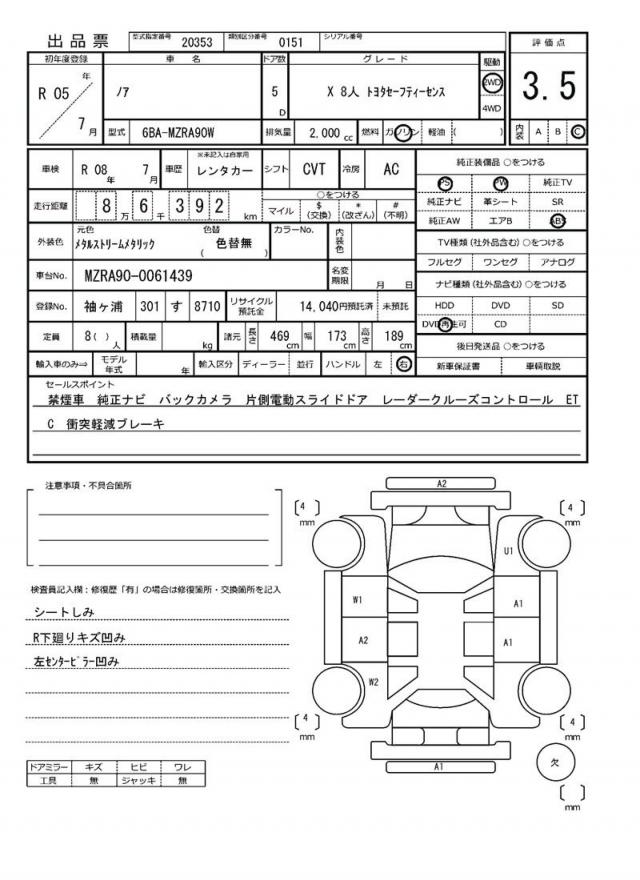 出品票 型式指定番号 20353 類別区分番号 0151 シリアル番号
評価点
3.5
内装 A B C
初年度登録 車名 ドア数 グレード 駆動
R 05 年 7 月
ノア 5 D X 8人 トヨタセーフティーセンス 2WD 4WD
型式 6BA-MZRA90W 排気量 2,000 cc 燃料 ガソリン 軽油 ( )
車検 R 08 年 7 月 車歴 ※未記入は自家用 レンタカー シフト CVT 冷房 AC
走行距離 8 万 6 千 3 9 2 km ○をつける マイル $ (交換) * (改ざん) # (不明)
外装色 元色 メタルストリームメタリック 色替 ( 色替無 ) カラーNo. 内装色
車台No. MZRA90-0061439 名変期限 月 日
登録No. 袖ヶ浦 301 す 8710 リサイクル預託金 14,040円預託済 未預託
定員 8( ) 人 積載量 kg 諸元 長さ 469 cm 幅 173 cm 高さ 189 cm
輸入車のみ⇒ モデル年式 年 輸入区分 ディーラー 並行 ハンドル 左 右
純正装備品 ○をつける
PS PW 純正TV
純正ナビ 革シート SR
純正AW エアB ABS
TV種類 (社外品含む) ○をつける
フルセグ ワンセグ アナログ
ナビ種類 (社外品含む) ○をつける
HDD DVD SD
DVD再生可 CD
後日発送品 ○をつける
新車保証書 車輌取説
セールスポイント
禁煙車 純正ナビ バックカメラ 片側電動スライドドア レーダークルーズコントロール ET
C 衝突軽減ブレーキ
注意事項・不具合箇所
検査員記入欄：修復歴「有」の場合は修復箇所・交換箇所を記入
シートしみ
R下廻りキズ凹み
左センターピラー凹み
ドアミラー キズ ヒビ ワレ
工具 無 ジャッキ 無
A2
[ 4 ] mm
[ 4 ] mm
U1
W1
A1
A2
A1
W2
[ 4 ] mm
[ 4 ] mm
A1
欠
[ ] mm